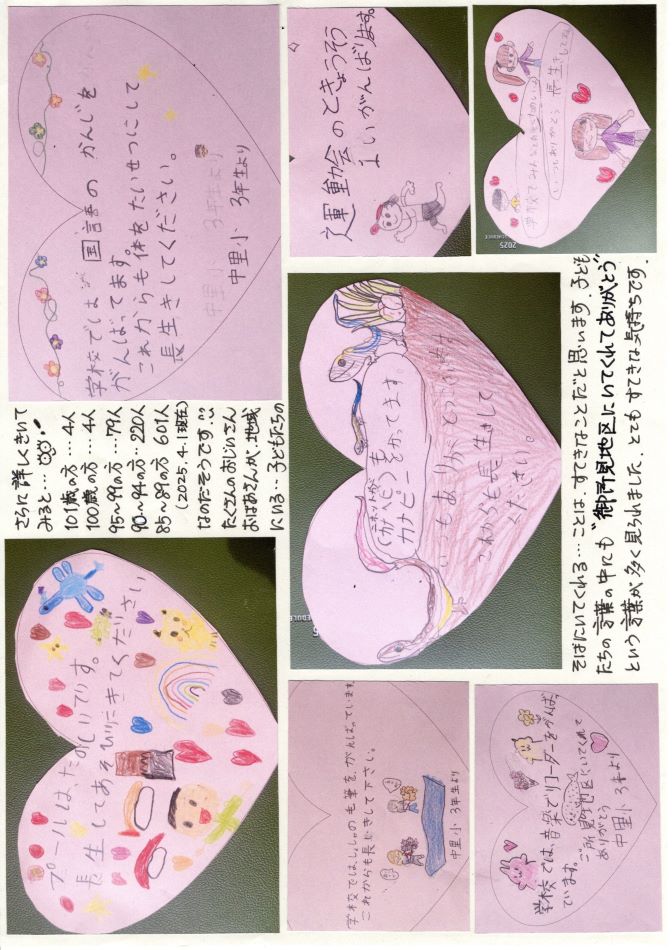 学校では 国語の かんじを
がんばってます。
これからも体をたいせつにして
長生きしてください。
中里小 3年生より
中里小 3年生より
運動会のときょうそう
1いがんばります。
学校でみんな
いつもありがとう 長生きしてね
2025
さらに詳しくきいて
みると…
101歳の方…4人
100歳の方…4人
95～99の方…79人
90～94の方…220人
85～89の方 601人
(2025.4.1現在)
なのだそうです…!!
たくさんのおじいさん
おばあさんが、地域
にいる…子どもたちの
ペットが
カナヘビ
をかってます。
いつもありがとう
これからも長生きして
ください。
そばにいてくれる…ことは、すてきなことだと思います。子ども
たちの言葉の中にも"御所見地区にいてくれてありがとう"
という言葉が多く見られました。とてもすてきな気持ちです。
プールは、たのしいです。
長生してあそびにきてください
学校ではしゅうじの毛筆を、がんばっています
これからも長生きして下さい。
中里小 3年生より
学校では、音楽でリコーダーをがんばっ
ています。
ご所見地区にいてくれて
ありがとう
中里小 3年より